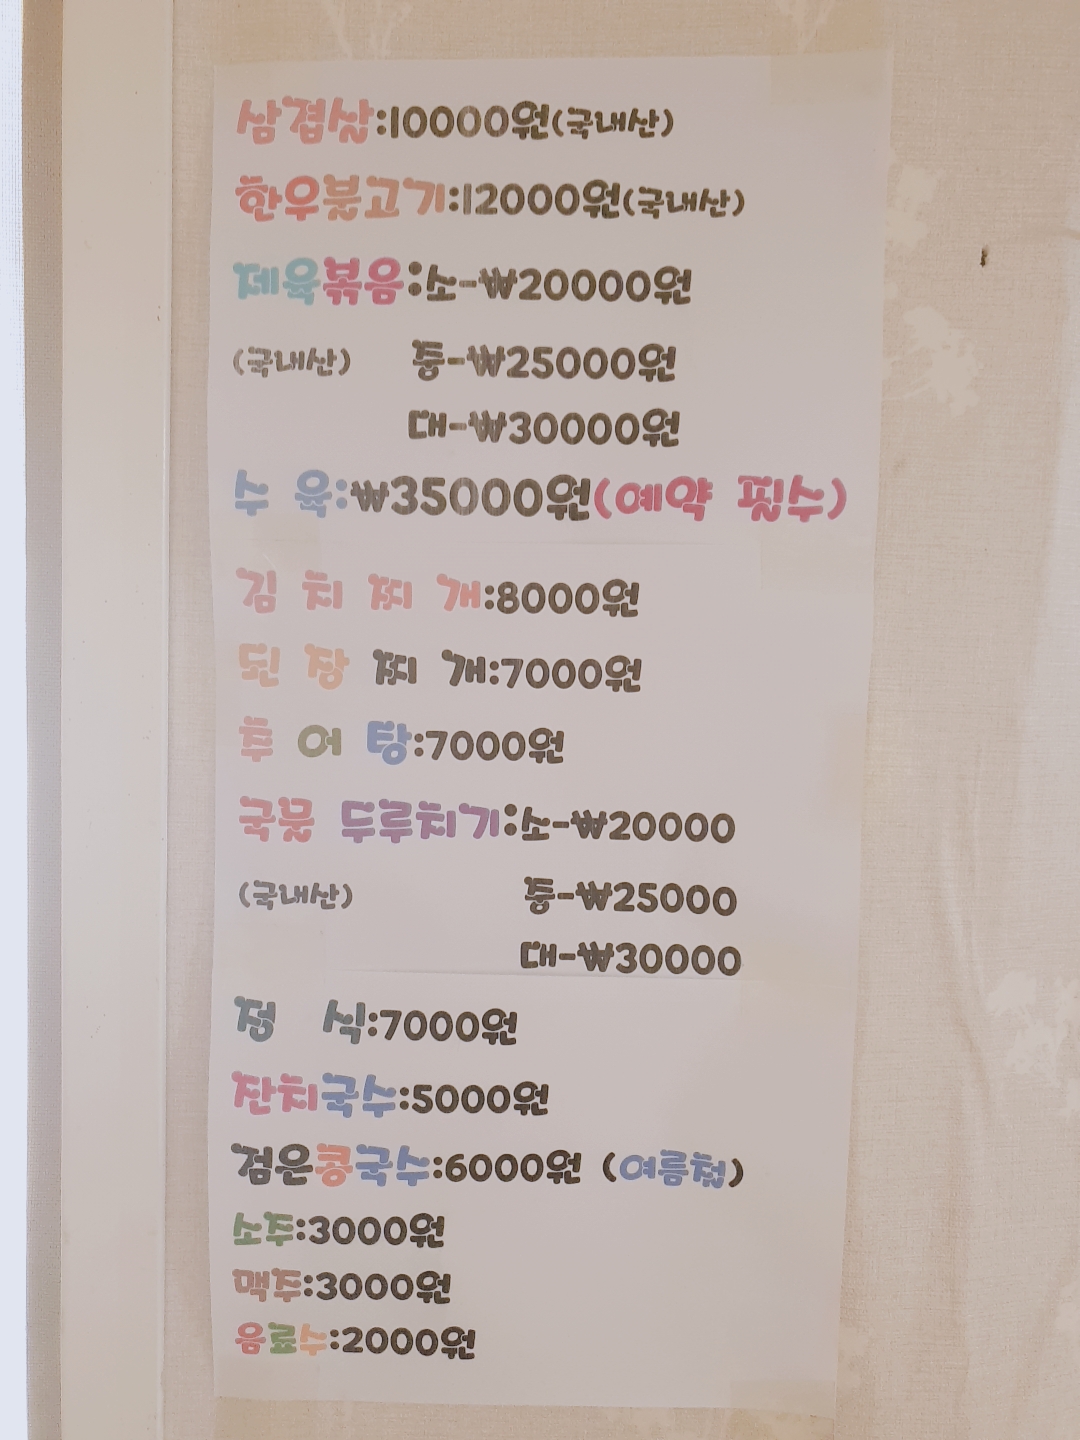 삼겹살:10000원(국내산)
한우불고기:12000원(국내산)
제육볶음:소-₩20000원
(국내산) 중-₩25000원
대-₩30000원
수 육:₩35000원(예약 필수)
김 치 찌 개:8000원
된 장 찌 개:7000원
추 어 탕:7000원
국물 두루치기:소-₩20000
(국내산) 중-₩25000
대-₩30000
정 식:7000원
잔치국수:5000원
검은콩국수:6000원 (여름철)
소주:3000원
맥주:3000원
음료수:2000원